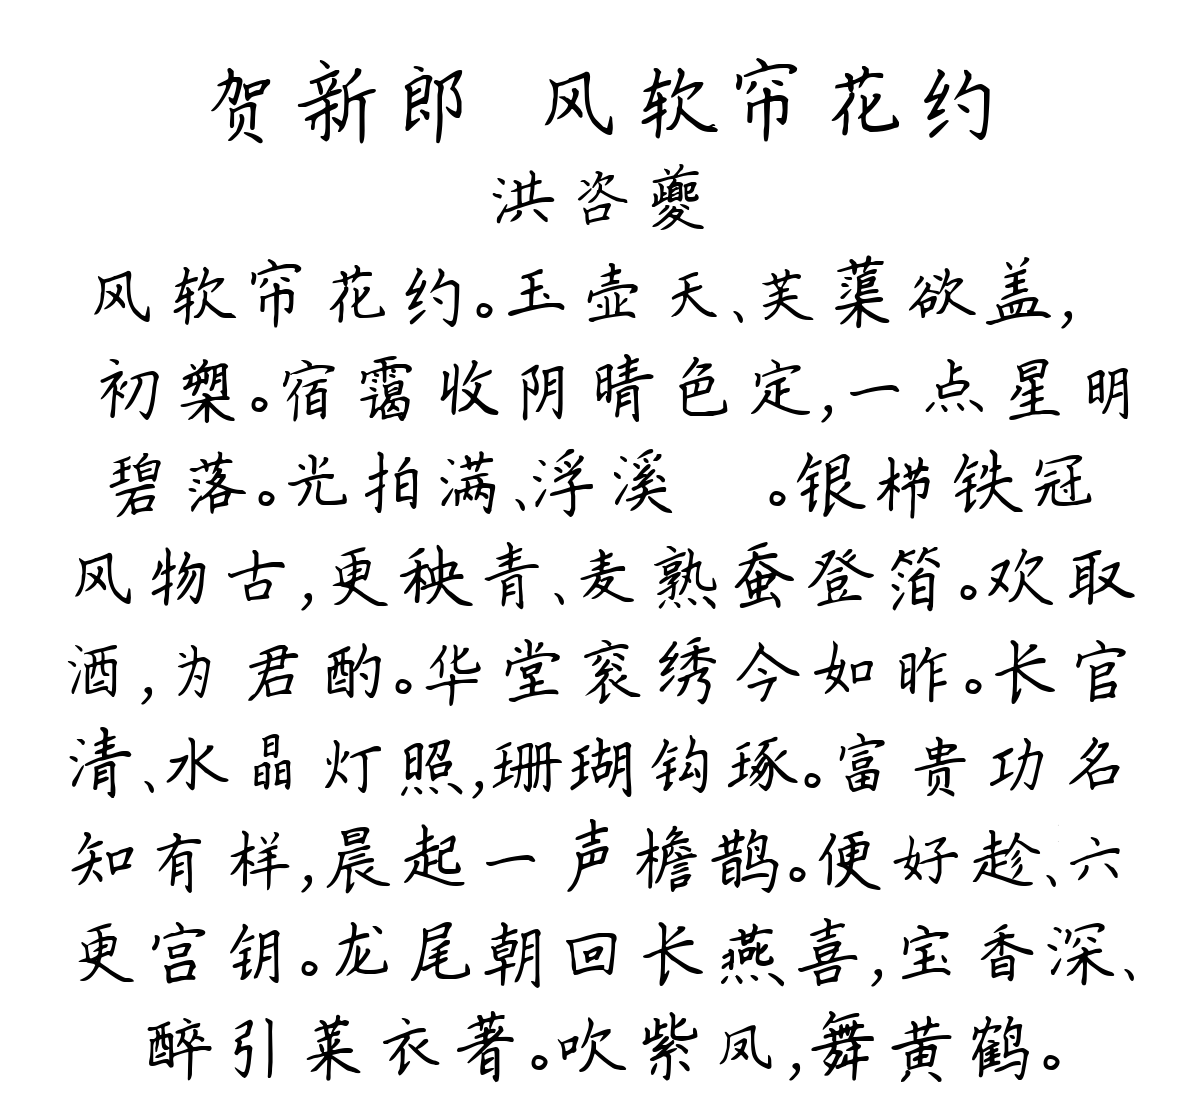 贺新郎 风软帘花约
洪咨夔
风软帘花约。玉壶天、芙蕖欲盖,
初槊。宿霭收阴晴色定,一点星明
碧落。光拍满、浮溪 。银栉铁冠
风物古,更秧青、麦熟蚕登箔。欢取
酒,为君酌。华堂衮绣今如昨。长官
清、水晶灯照,珊瑚钩琢。富贵功名
知有样,晨起一声檐鹊。便好趁、六
更宫钥。龙尾朝回长燕喜,宝香深、
醉引莱衣著。吹紫凤,舞黄鹤。